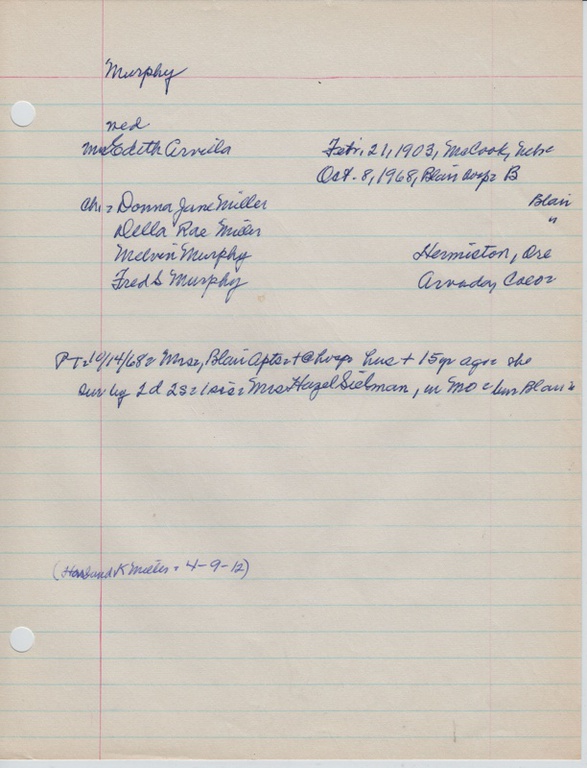 Murphy
med
Mrs Edith Arvilla Feb. 21, 1903, McCook, Nebr
Oct. 8, 1968, Blair hosp = B
Ch = Donna Jane Miller Blair
Della Rae "
Melvin Murphy Hermiston, Ore
Fred S Murphy Arvada, Colo =
PT = 10/14/68 = Mrs =, Blair Apts = + @ hosp hus + 15 yr ago = she
sur by 2d 2s = 1 sis = Mrs Hazel , in MO = bur Blair =
( K = 4-9-12)